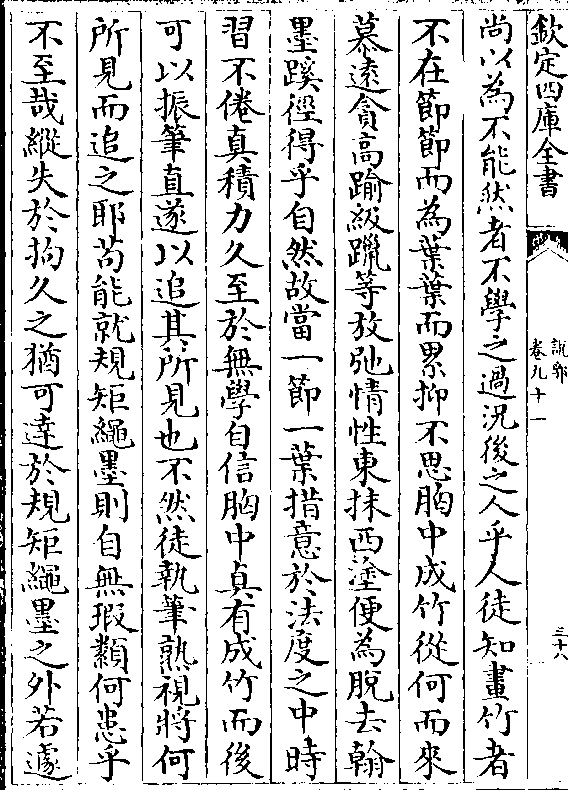 欽定四庫全書
說郛
卷九十一
三十八
尚以為不能然者不學之過況後之人乎人徒知畫竹者
不在節節而為葉葉而累抑不思胸中成竹從何而來
慕遠貪高踰級躐等放弛情性東抹西塗便為脫去翰
墨蹊徑得乎自然故當一節一葉措意於法度之中時
習不倦真積力久至於無學自信胸中真有成竹而後
可以振筆直遂以追其所見也不然徒執筆熟視將何
所見而追之耶苟能就規矩繩墨則自無瑕纇何患乎
不至哉縱失於拘久之猶可達於規矩繩墨之外若遽